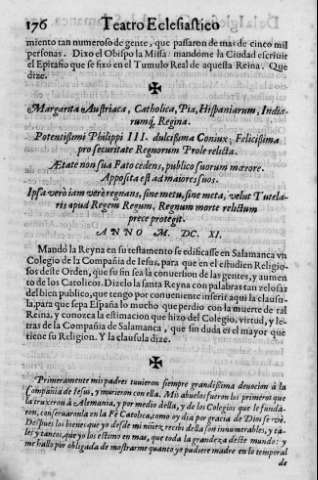 176 Teatro Eclesiastico
miento tan numeroso de gente, que passaron de mas de cinco mil
personas. Dixo el Obispo la Missa: mandòme la Ciudad escriuir
el Epitafio que se fixò en el Tumulo Real de aquesta Reina. Que
dize.
✠
Margarita Austriaca, Catholica, Pia, Hispaniarum, Indiarumq́; Regina.
Potentissimi Philippi III. dulcissima Coniux; Felicissima
pro securitate Regnorum Prole relicta.
Ætate non sua Fato cedens, publico suorum mærore.
Apposita est ad maiores suos.
Ipsa verò iam verè regnans, sine metu, sine meta, velut Tutelaris apud Regem Regum, Regnum morte relictum
prece protegit.
ANNO M. DC. XI.
Mandò la Reyna en su testamento se edificasse en Salamanca vn
Colegio de la Compañia de Iesus, para que en el estudien Religiosos deste Orden, que su fin sea la conuersion de las gentes, y aumento de los Catolicos. Dizelo la santa Reyna con palabras tan zelosas
del bien publico, que tengo por conueniente inserir aqui la clausula, para que sepa España lo mucho que perdio con la muerte de tal
Reina, y conozca la estimacion que hizo del Colegio, virtud, y letras de la Compañia de Salamanca, que sin duda es el mayor que
tiene su Religion. Y la clausula dize.
✠
Primeramente mis padres tuuieron siempre grandissima deuocion à la
Compañia de Iesus, y murieron con ella. Mis abuelos fueron los primeros que
la truxeron à Alemania, y por medio della, y de los Colegios que le fundaron, conseruaronla en la Fè Catolica, como oy dia por gracia de Dios se vè
Despues los bienes que yo desde mi niñez recibi della son innumerables, y tales y tantos, que yo los estimo en mas, que toda la grandeza deste mundo: y
me hallo por obligada de mostrarme quanto yo pudiere madre en lo temporal
de